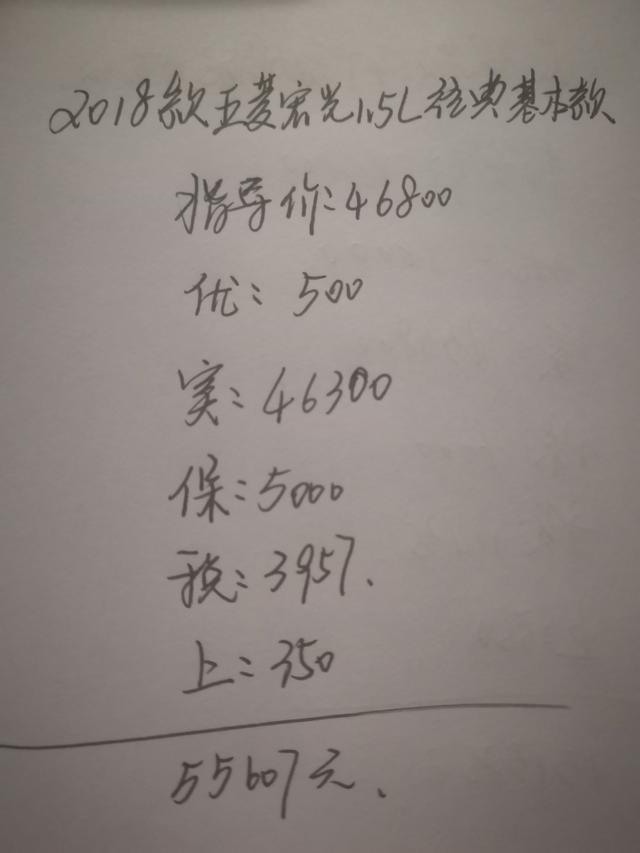 2018款五菱宏光1.5L经典基本款
指导价:46800
优: 500
实:46300
保:5000
税:3957.
上:350
55607元.